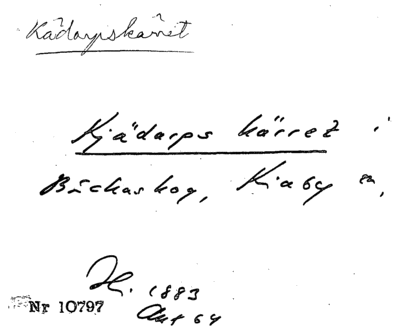 Kädarpskärret
Kjädarps kärret i
Bäckaskog, Kiaby sn,
H. 1883
Okt 64
Nr 10797